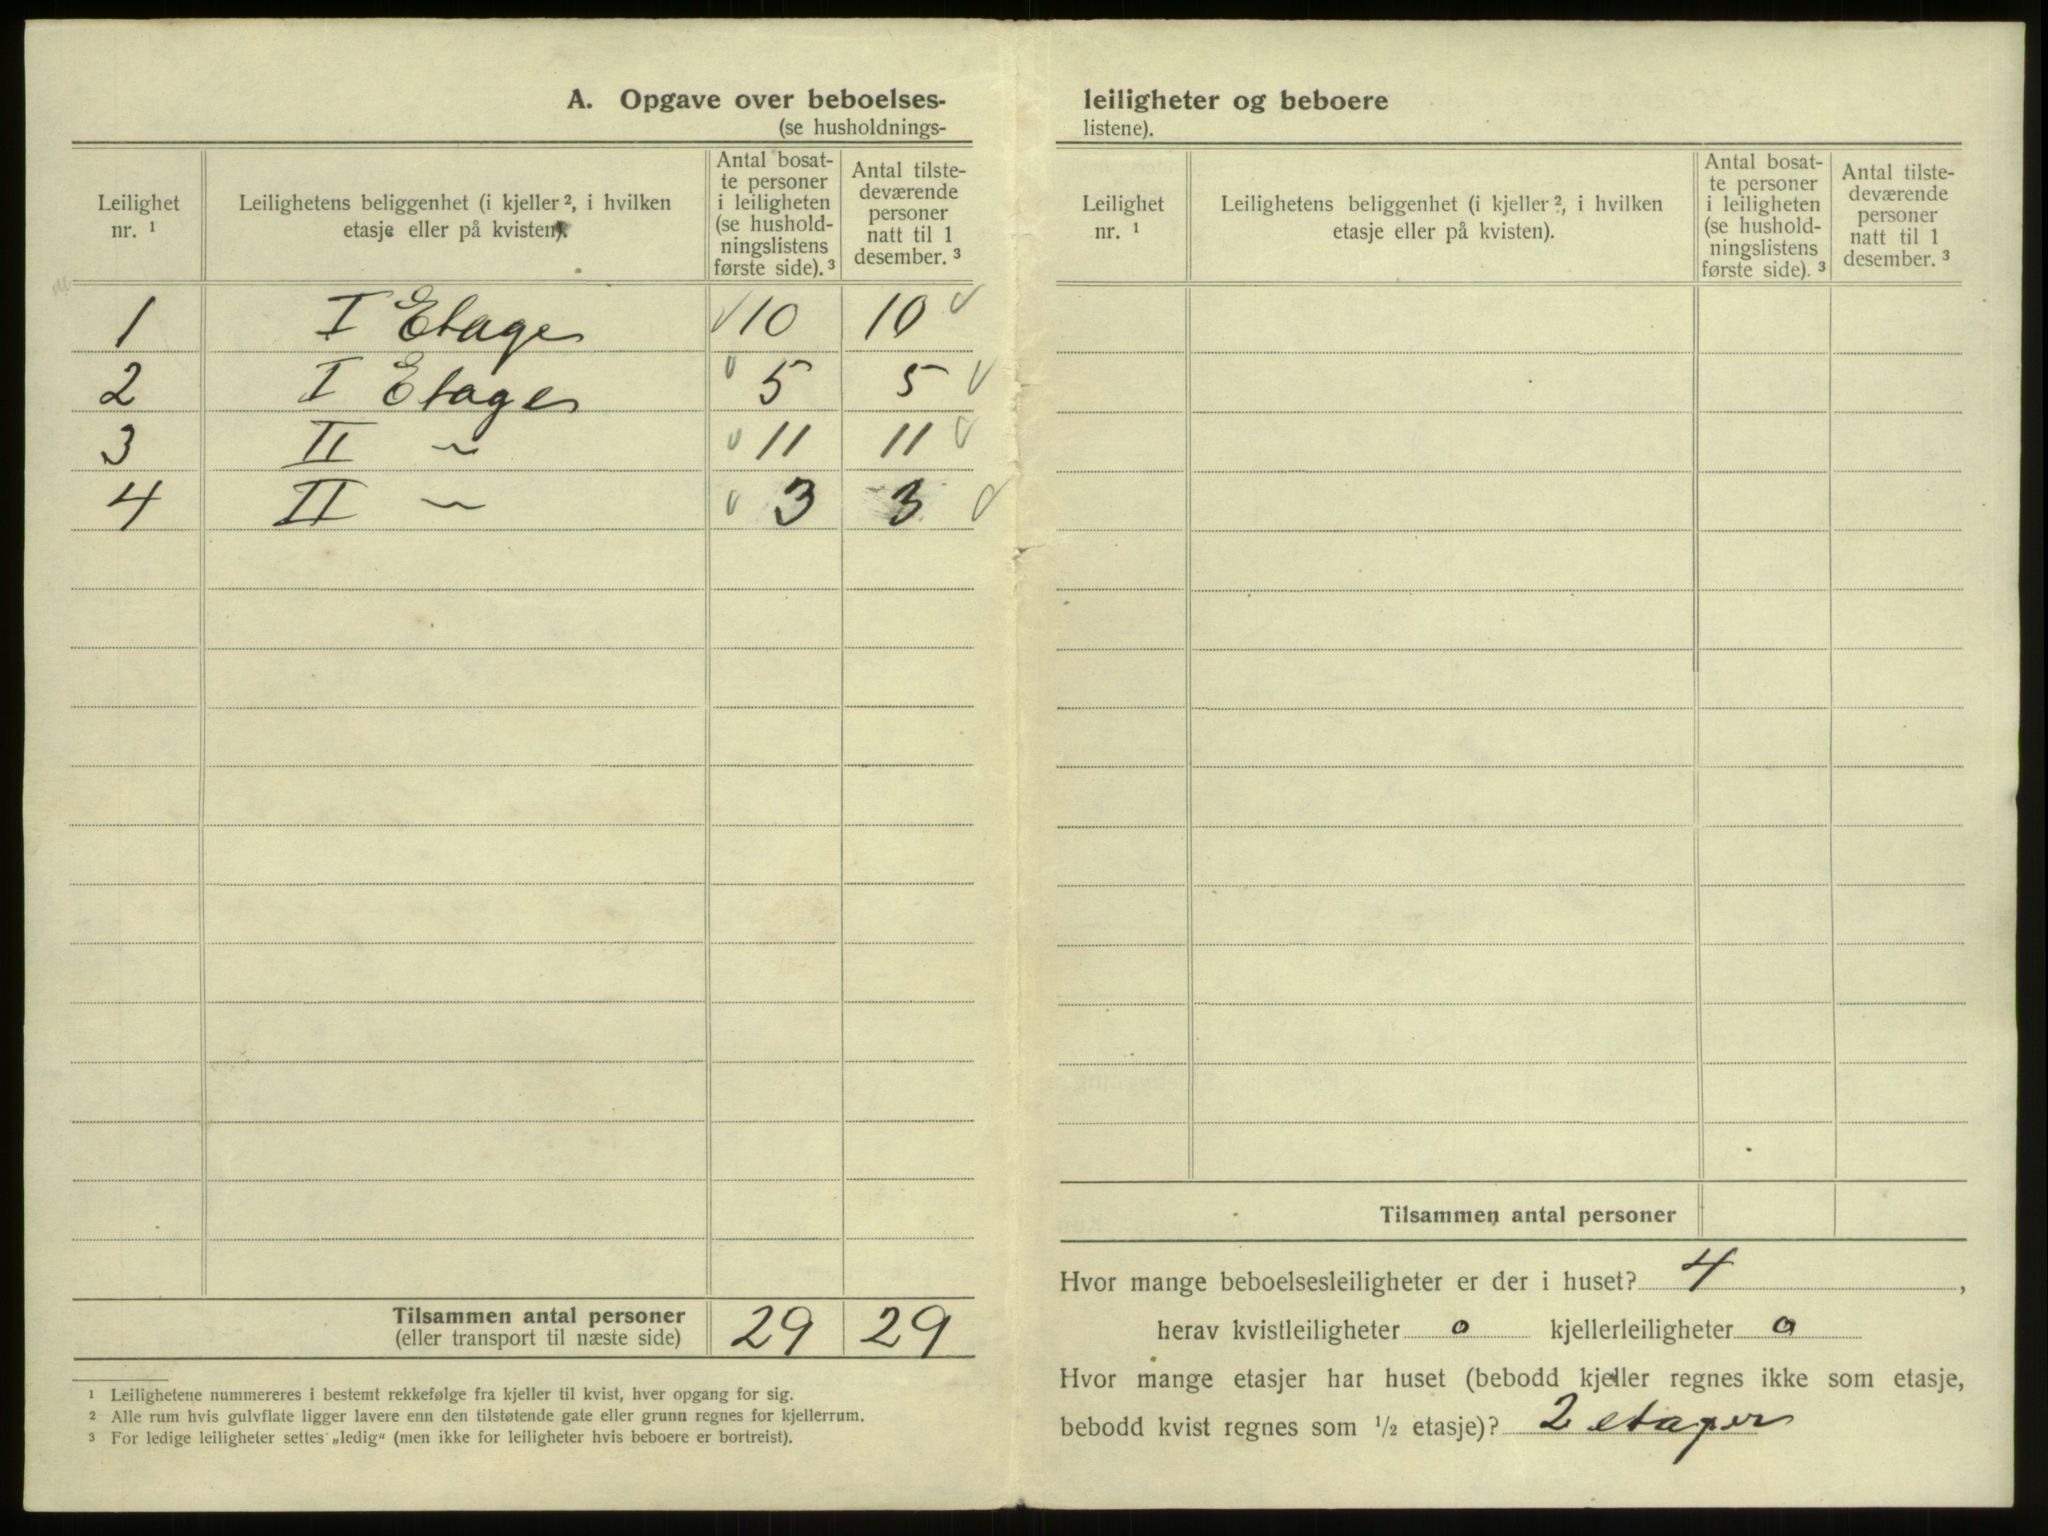 A. Opgave over beboelses-
(se husholdnings-
Leilighet nr. ¹
Leilighetens beliggenhet (i kjeller ², i hvilken etasje eller på kvisten).
Antal bosat-
te personer
i leiligheten
(se hushold-
ningslistens
første side). ³
Antal tilste-
deværende
personer
natt til 1
desember. ³
1 I Etage 10 10
2 I Etage 5 5
3 II ~ 11 11
4 II ~ 3 3
Tilsammen antal personer 29 29
(eller transport til næste side)
¹ Leilighetene nummereres i bestemt rekkefølge fra kjeller til kvist, hver opgang for sig.
² Alle rum hvis gulvflate ligger lavere enn den tilstøtende gate eller grunn regnes for kjellerrum.
³ For ledige leiligheter settes „ledig“ (men ikke for leiligheter hvis beboere er bortreist).
leiligheter og beboere
listene).
Leilighet nr. ¹
Leilighetens beliggenhet (i kjeller ², i hvilken etasje eller på kvisten).
Antal bosat-
te personer
i leiligheten
(se hushold-
ningslistens
første side). ³
Antal tilste-
deværende
personer
natt til 1
desember. ³
Tilsammen antal personer
Hvor mange beboelsesleiligheter er der i huset? 4,
herav kvistleiligheter 0 kjellerleiligheter 0
Hvor mange etasjer har huset (bebodd kjeller regnes ikke som etasje,
bebodd kvist regnes som ½ etasje)? 2 etager